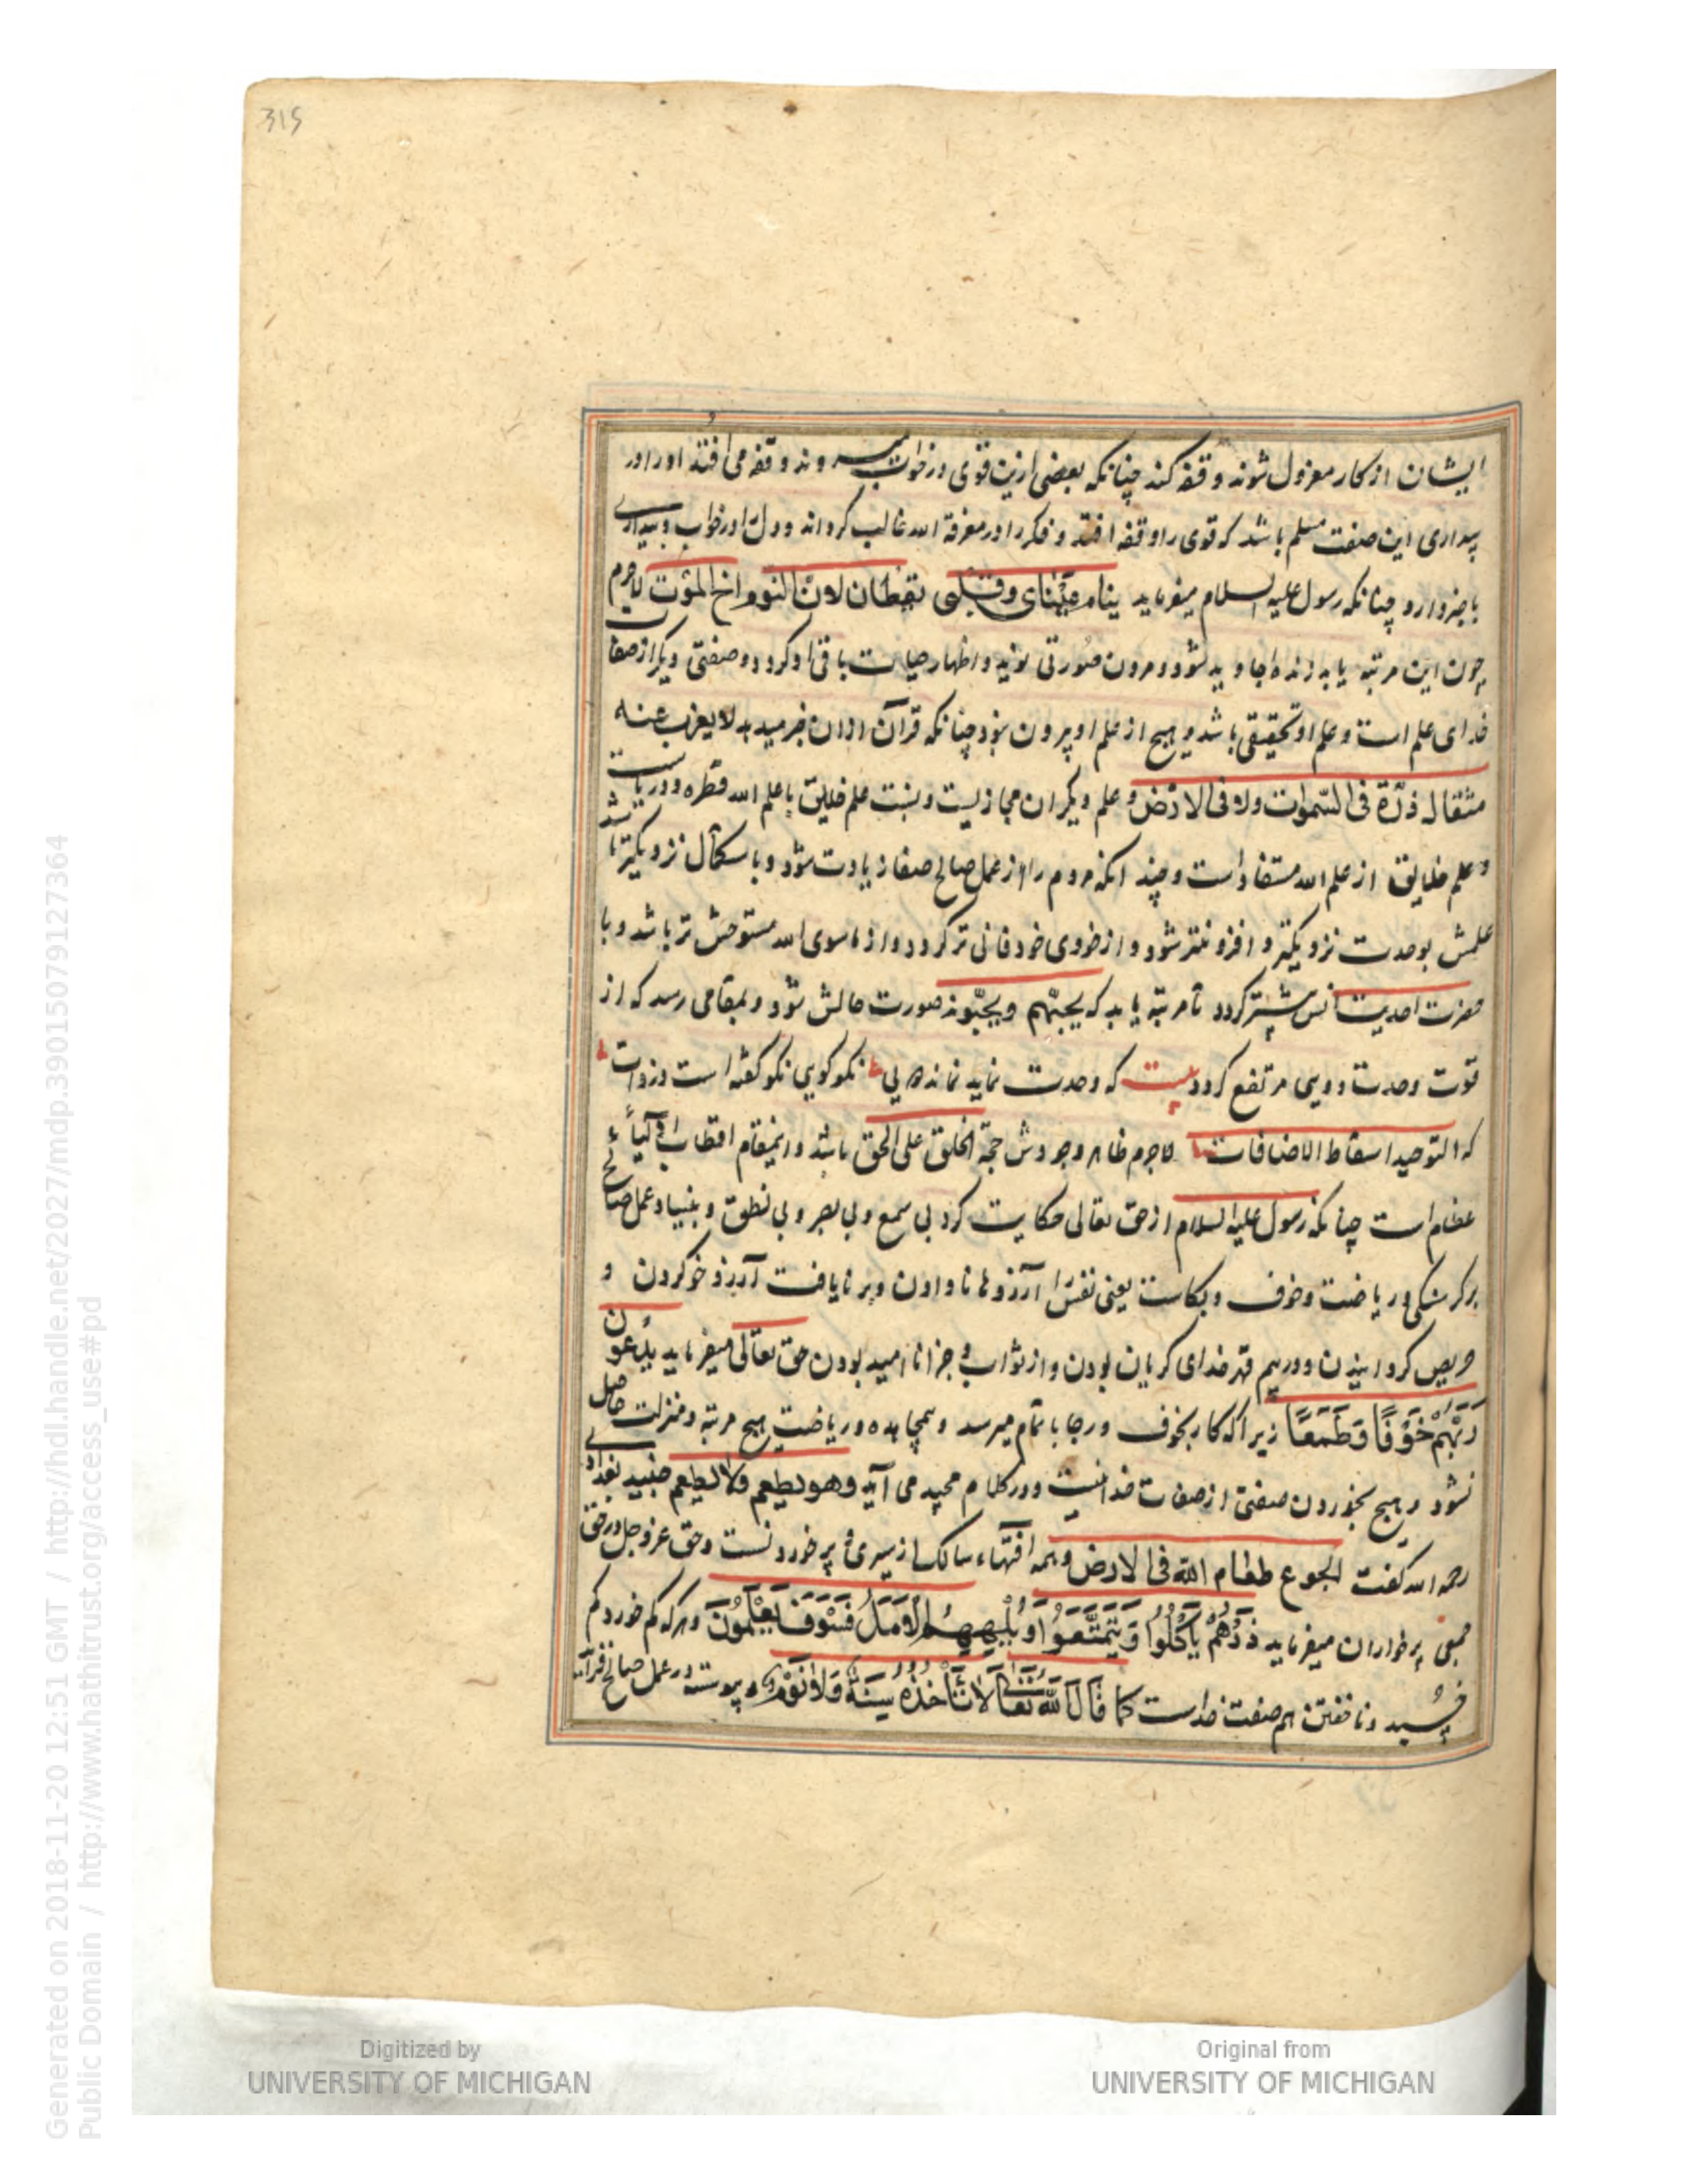 315
ایشان از کار معزول شوند و قفه کند چنانکه بعضی ازین قوی در خواب میروند و قفه می افتد او را در
بیداری این صفت مسلم باشد که قوی را وقفه افتد و فکر را در معرفة الله غالب کرداند و دل را در خواب و بیداری
باخبر دارد چنانکه رسول علیه السلام میفرماید ینام عینای وقلبی یقظان لان النوم اخ الموت لاجرم
چون این مرتبه یابد زنده جاوید شود و مردن صورتی بود و اظهار حیات باقی او کردد و صفتی دیکر از صفات
خدای علم است و علم او تحقیقی باشد و هیچ از علم او بیرون نبود چنانکه قرآن ازان خبر میدهد لا یعزب عنه
مثقال ذرة فی السموات ولا فی الارض و علم دیکران مجازیست و نسبت علم خلایق با علم الله قطره و دریاست
و علم خلایق از علم الله مستفاد است و چند انکه مردم را از عمل صالح صفا زیادت شود و با سکال نزدیکتر باشد
علمش بوحدت نزدیکتر و افزونتر شود و از خودی خود فانی تر کردد و از ماسوی الله مستوحش تر باشد و با
حضرت احدیت انس بیشتر کردد تا مرتبه یابد که یحبّهم ویحبّونه صورت حالش شود و بمقامی رسد که از
قوت وحدت دویی مرتفع کردد بیت که وحدت نماید نماند دویی نکو کویی نکو کفته است در ذات
که التوحید اسقاط الاضافات لاجرم ظاهر وجودش حجة الخلق علی الحق باشد و اینمقام اقطاب و انبیاء
عظام است چنانکه رسول علیه السلام از حق تعالی حکایت کرد بی سمع و بی بصر و بی نطق و بنیاد عمل صالح
بر کرسنکی و ریاضت و خوف و بکاست یعنی نفس را آرزوها نا دادن و بر نایافت آرزو خو کردن و
حریص کردانیدن و در بیم قهر خدای کریان بودن و از ثواب و جزا نا امید بودن حق تعالی میفرماید یدعون
ربّهم خوفًا وطمعًا زیرا که کار بخوف و رجا باتمام میرسد و بمجاهده و ریاضت هیچ مرتبه و منزلت حاصل
نشود و هیچ نخوردن صفتی از صفات خداییست و در کلام مجید می آید وهو یطعم ولا یطعم جنید بغدادی
رحمه الله کفت الجوع طعام الله فی الارض و همه افتهاء سالک از سیری و پر خوردنست و حق عز و جل در حق
جمعی پرخواران میفرماید ذرهم یأکلوا ویتمتعوا ویلههم الامل فسوف یعلمون و هر که کم خورد کم
خسپد و نا خفتن هم صفت خداست کما قال الله تعالی لا تأخذه سنة ولا نوم و پیوسته در عمل صالح
Digitized by
UNIVERSITY OF MICHIGAN
Original from
UNIVERSITY OF MICHIGAN
Generated on 2018-11-20 12:51 GMT / http://hdl.handle.net/2027/mdp.39015079127364
Public Domain / http://www.hathitrust.org/access_use#pd